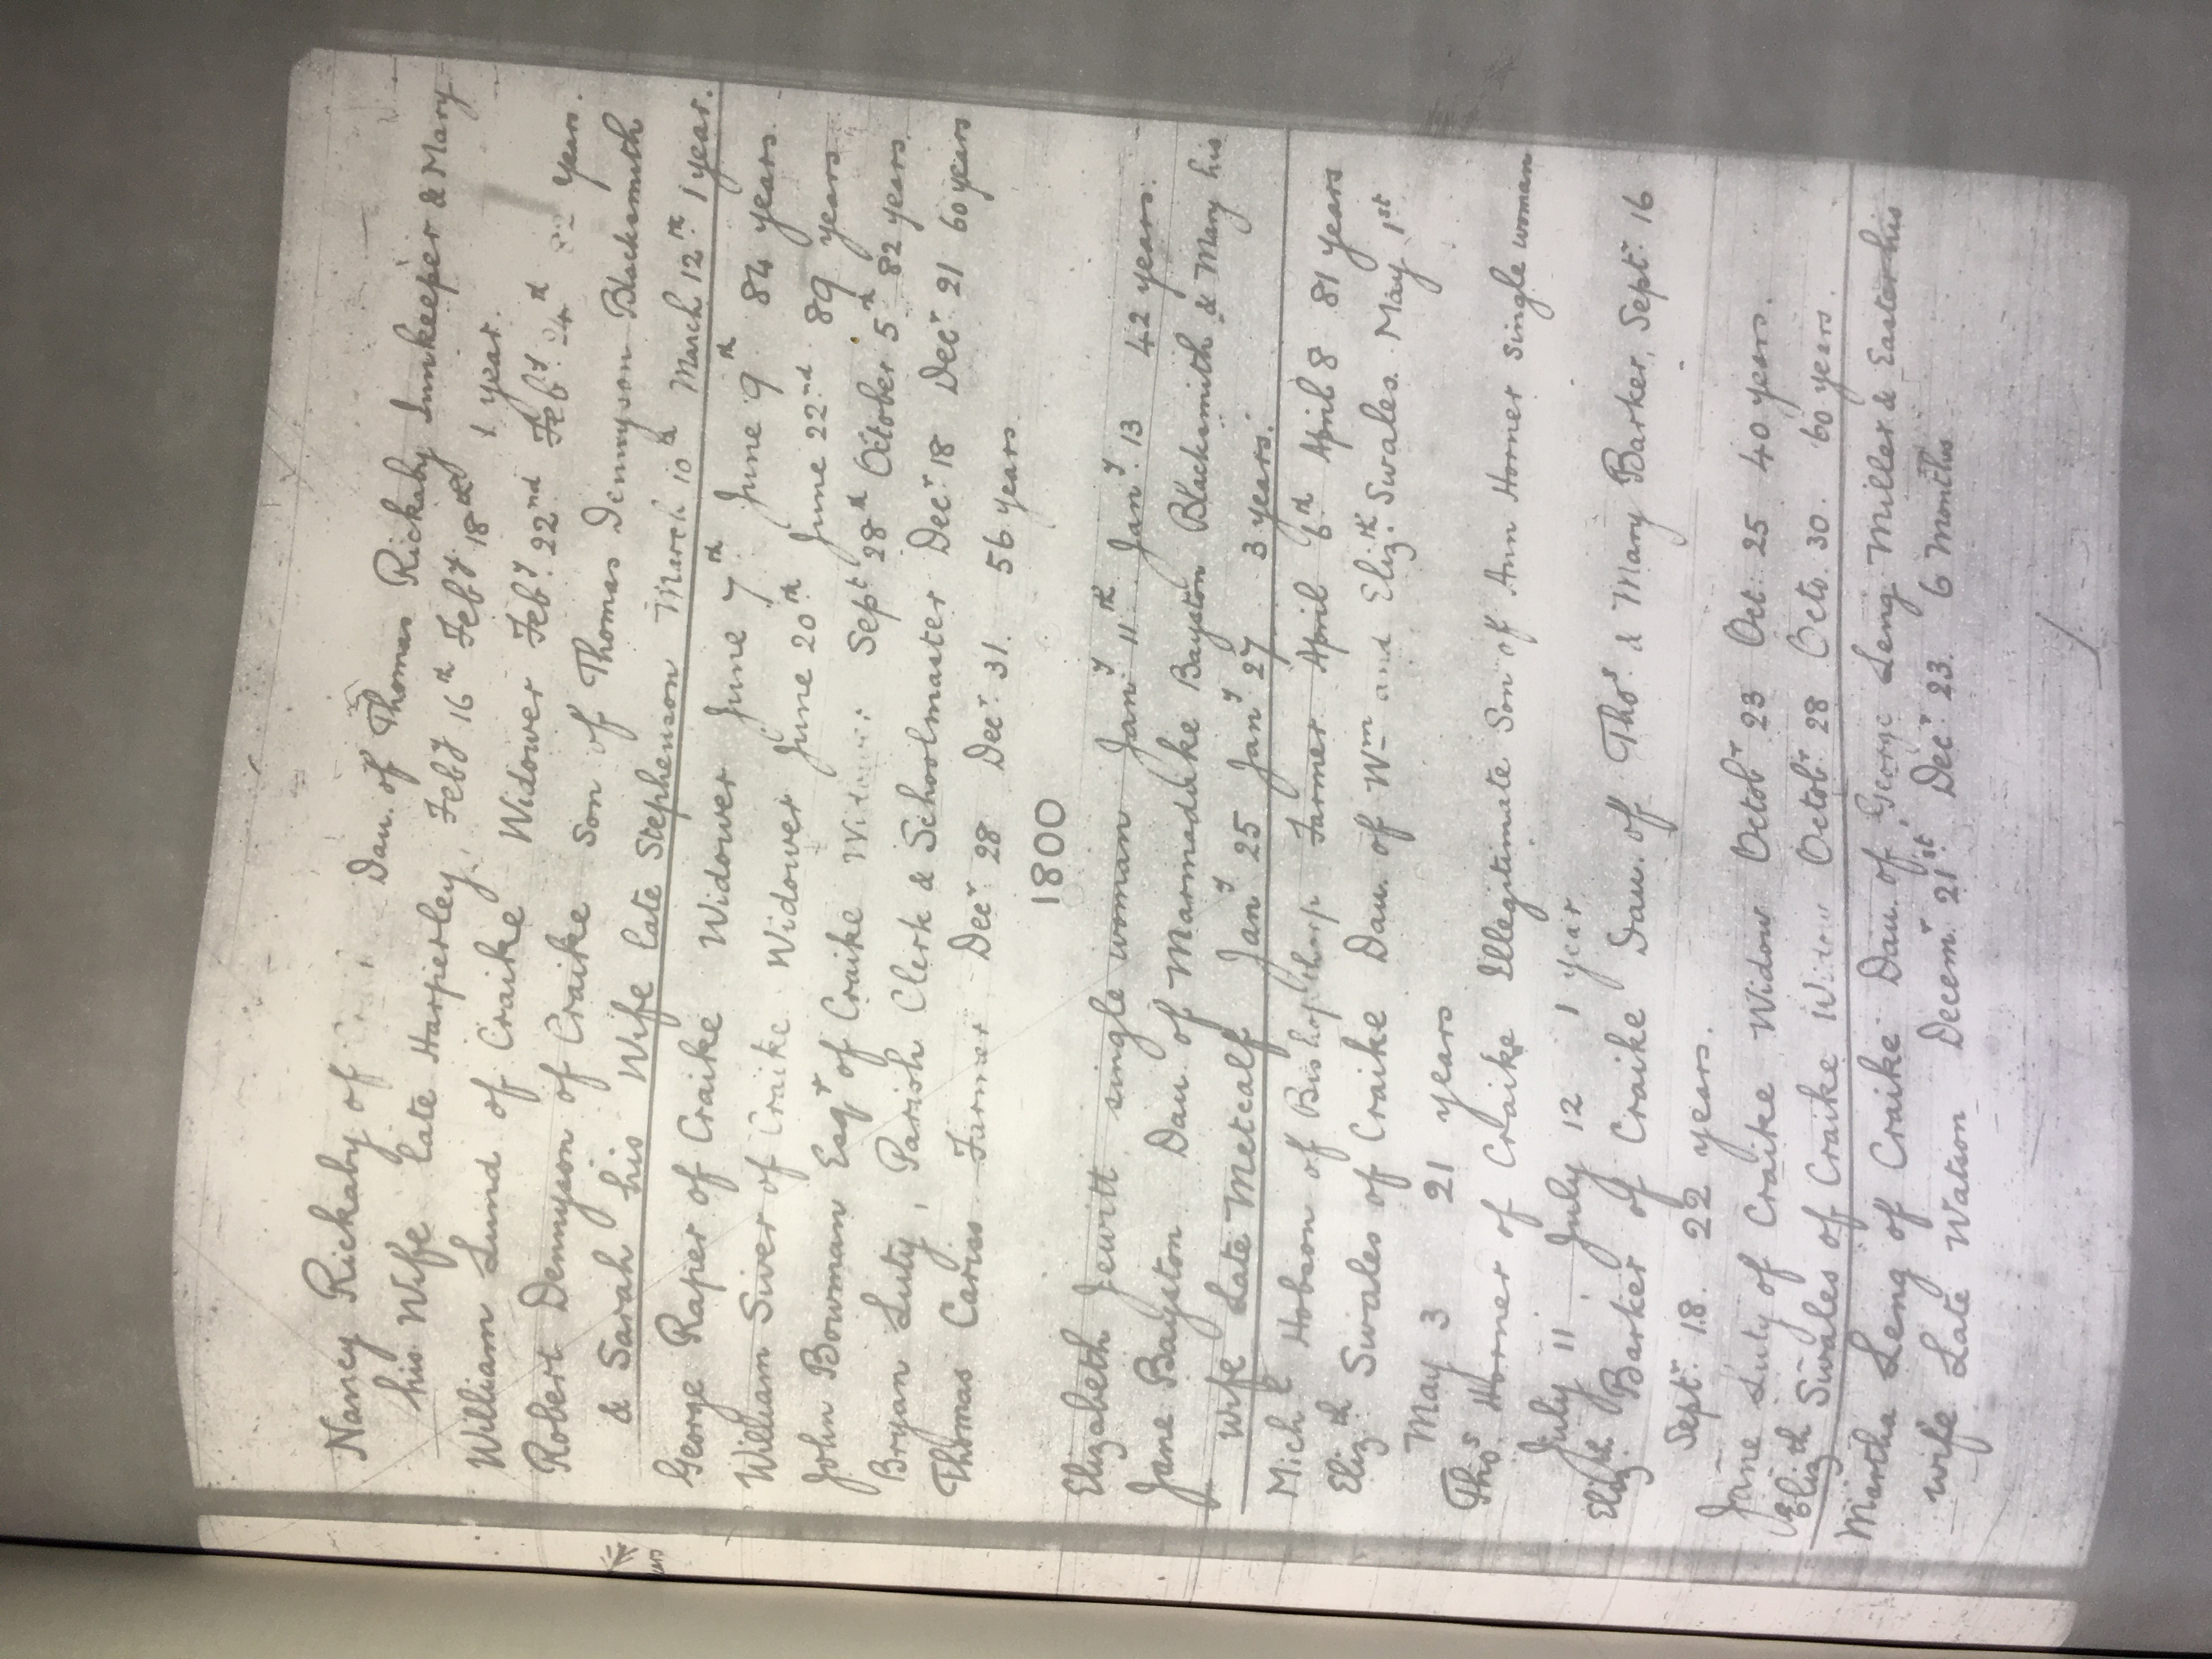 Nancy Rickaby of Dau. of Thomas Rickaby Innkeeper & Mary
his Wife late Harperley. Feby 16th Feby 18th 1 year.
William Lund of Craike Widower Feby 22nd Feby 24th years.
Robert Dennyson of Craike Son of Thomas Dennyson Blacksmith
& Sarah his Wife late Stephenson March 10th March 12th 1 year.
George Raper of Craike Widower June 7th June 9th 84 years.
William Siver of Craike Widower June 20th June 22nd 89 years
John Bowman Esqr of Craike Sept 28th October 5th 82 years.
Bryan Luty, Parish Clerk & Schoolmaster Decr 18 Decr 21 60 years
Thomas Cariss Farmer Decr 28 Decr 31. 56 years.
1800
Elizabeth Jewitt single woman Jany 11th Jany 13 42 years.
Jane Bayston Dau of Marmaduke Bayston Blacksmith & Mary his
Wife Late Metcalf Jany 25 Jany 27 3 years.
Michl Hobson of Bishopthorp Farmer April 6th April 8 81 years
Elizth Swales of Craike Dau. of Wm and Elizth Swales. May 1st
May 3 21 years
Thos. Horner of Craike Illegitimate Son of Ann Horner Single woman
July 11 July 12 1 year
Elizth Barker of Craike Dau. of Thos & Mary Barker, Septr 16
Septr 18. 22 years.
Jane Luty of Craike Widow Octobr 23 Oct. 25 40 years.
Elizth Swales of Craike Octobr 28 Octo. 30. 60 years.
Martha Leng of Craike Dau. of George Leng Miller & Easter his
wife Late Watson Decemr 21st Decr 23. 6 Months